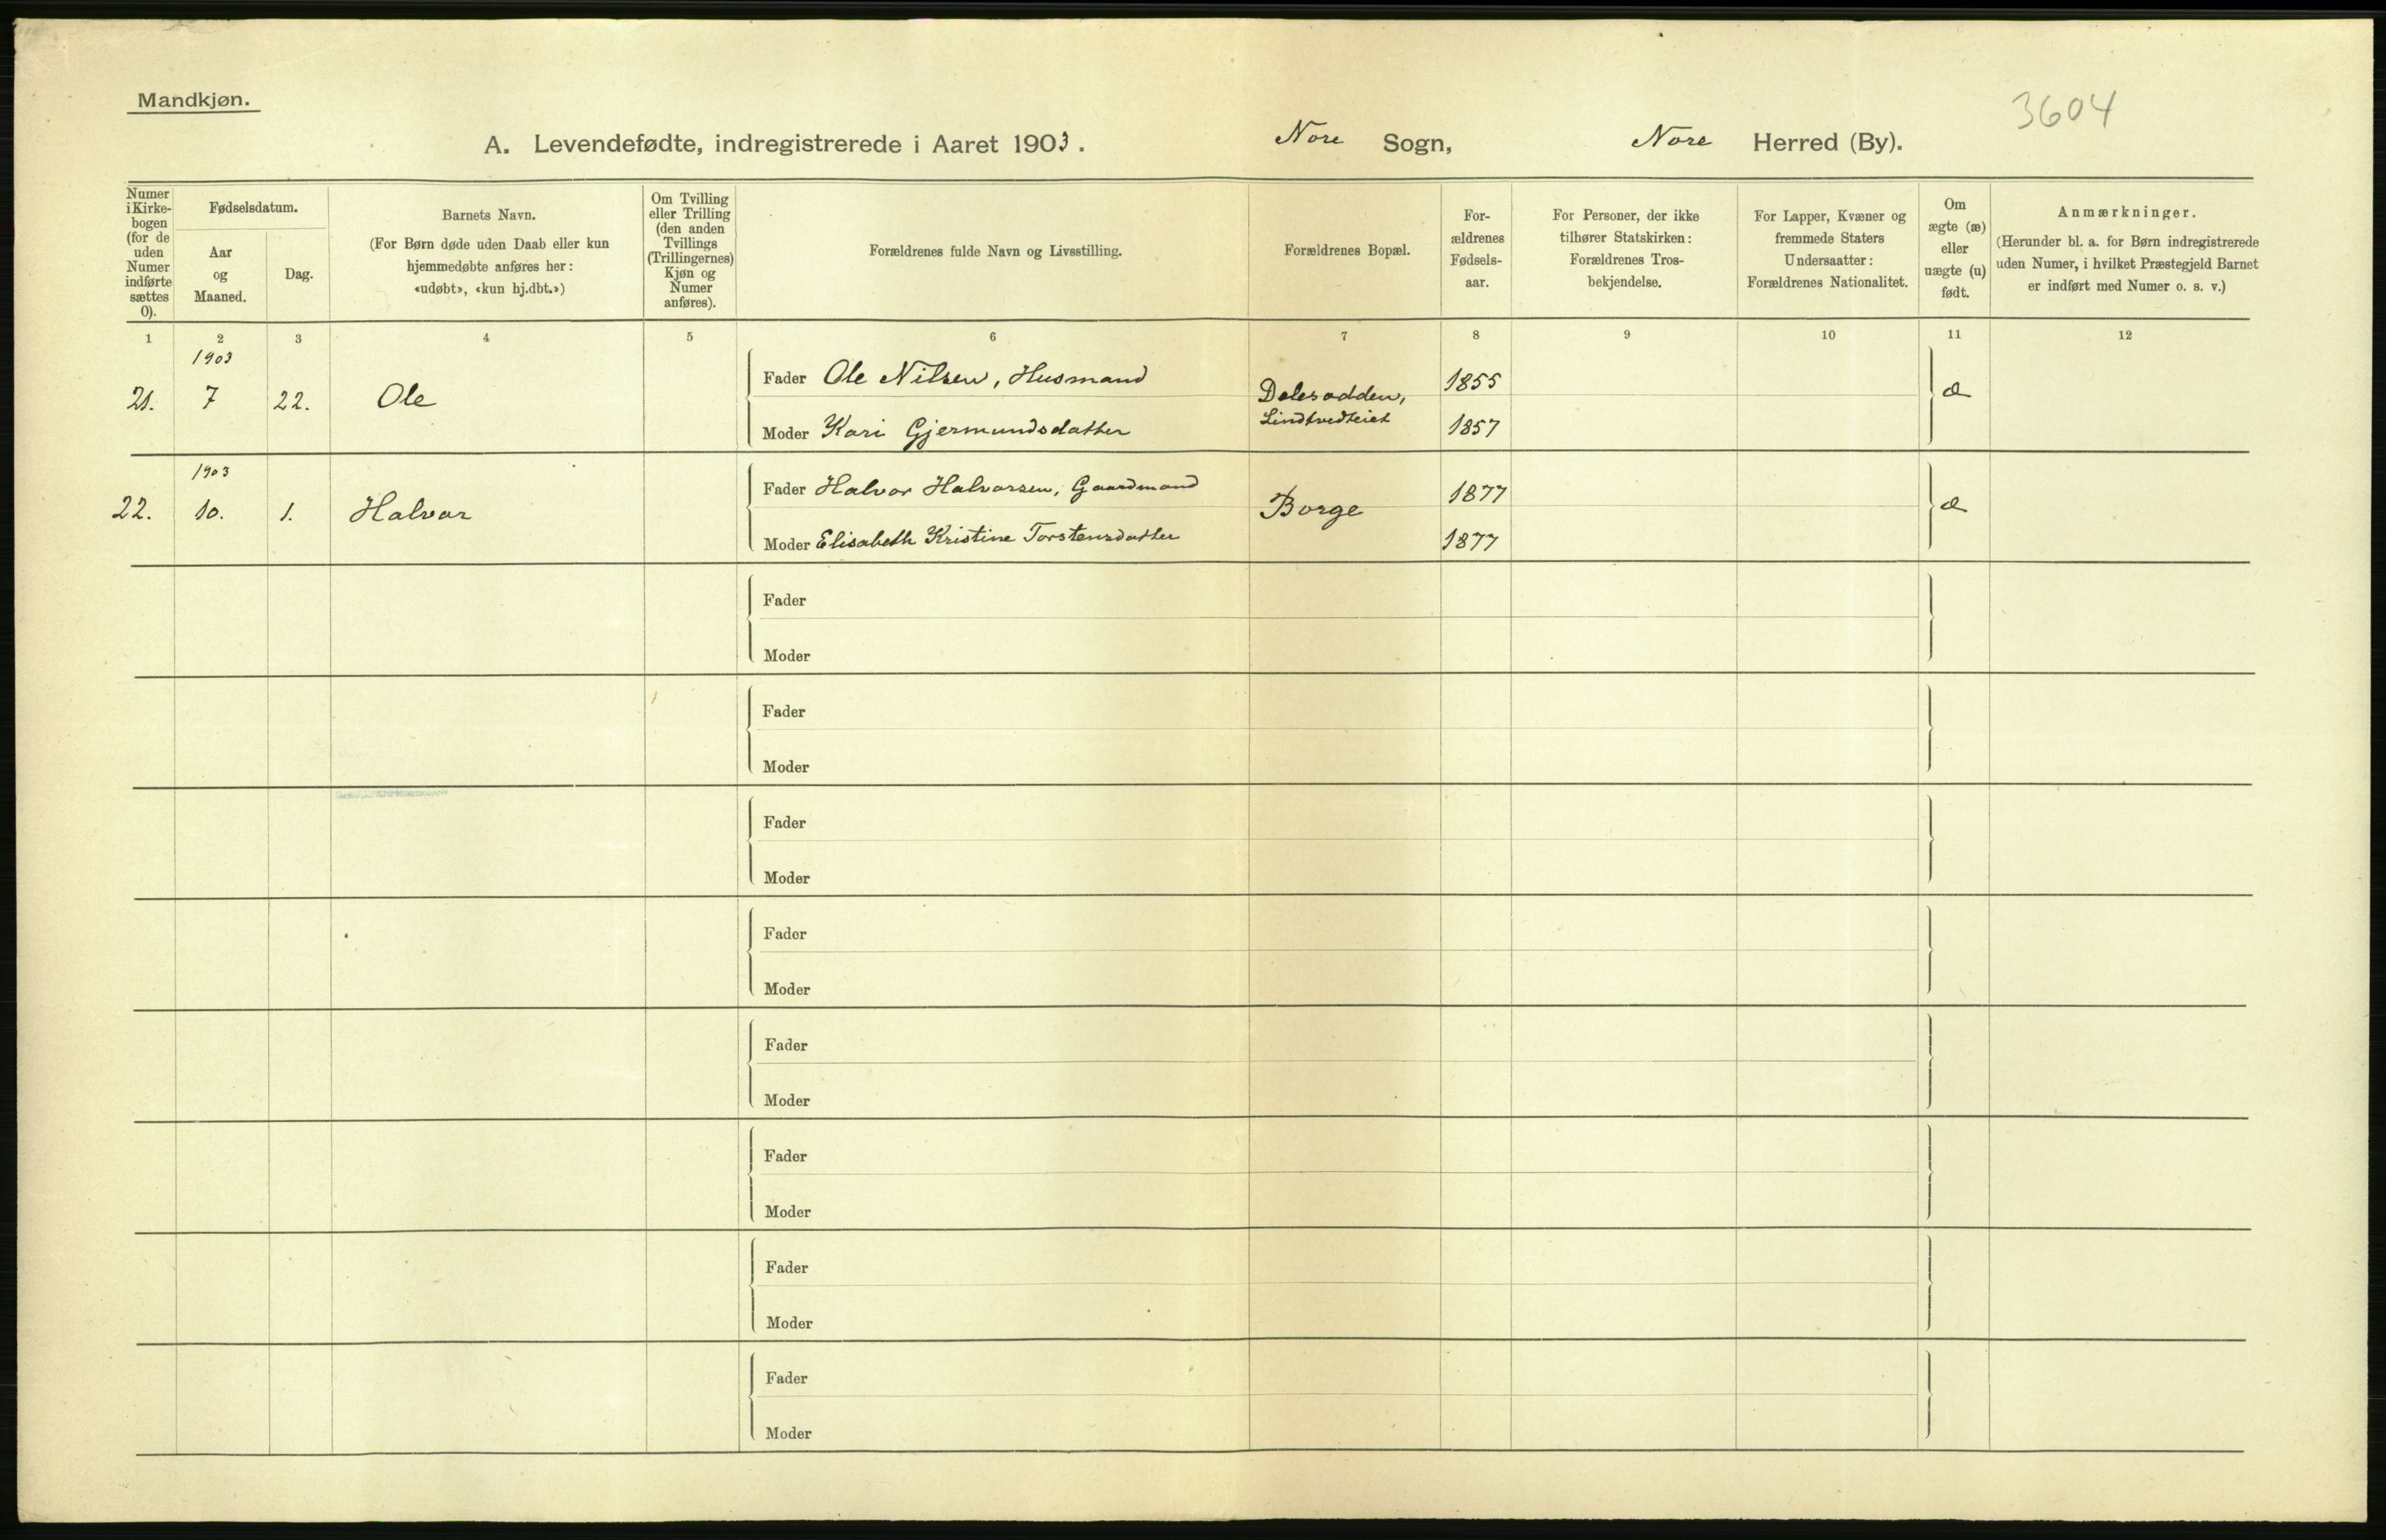 Mandkjøn.
3604
A. Levendefødte, indregistrerede i Aaret 1903. Nore Sogn, Nore Herred (By).
Numer
i Kirke-
bogen
(for de
uden
Numer
indførte
sættes
0).
Fødselsdatum.
Aar
og
Maaned.
Dag.
Barnets Navn.
(For Børn døde uden Daab eller kun
hjemmedøbte anføres her:
«udøbt», «kun hj.dbt.»)
Om Tvilling
eller Trilling
(den anden
Tvillings
(Trillingernes)
Kjøn og
Numer
anføres).
Forældrenes fulde Navn og Livsstilling.
Forældrenes Bopæl.
For-
ældrenes
Fødsels-
aar.
For Personer, der ikke
tilhører Statskirken:
Forældrenes Tros-
bekjendelse.
For Lapper, Kvæner og
fremmede Staters
Undersaatter:
Forældrenes Nationalitet.
Om
ægte (æ)
eller
uægte (u)
født.
Anmærkninger.
(Herunder bl. a. for Børn indregistrerede
uden Numer, i hvilket Præstegjeld Barnet
er indført med Numer o. s. v.)
1 2 3 4 5 6 7 8 9 10 11 12
1903
Fader Ole Nilsen, Husmand 1855
21. 7 22. Ole Dalesodden, æ
Lindtvedteiet
Moder Kari Gjermundsdatter 1857
1903
Fader Halvor Halvorsen, Gaardmand 1877
22. 10. 1. Halvor Borge æ
Moder Elisabeth Kristine Torstensdatter 1877
Fader
Moder
Fader
Moder
Fader
Moder
Fader
Moder
Fader
Moder
Fader
Moder
Fader
Moder
Fader
Moder